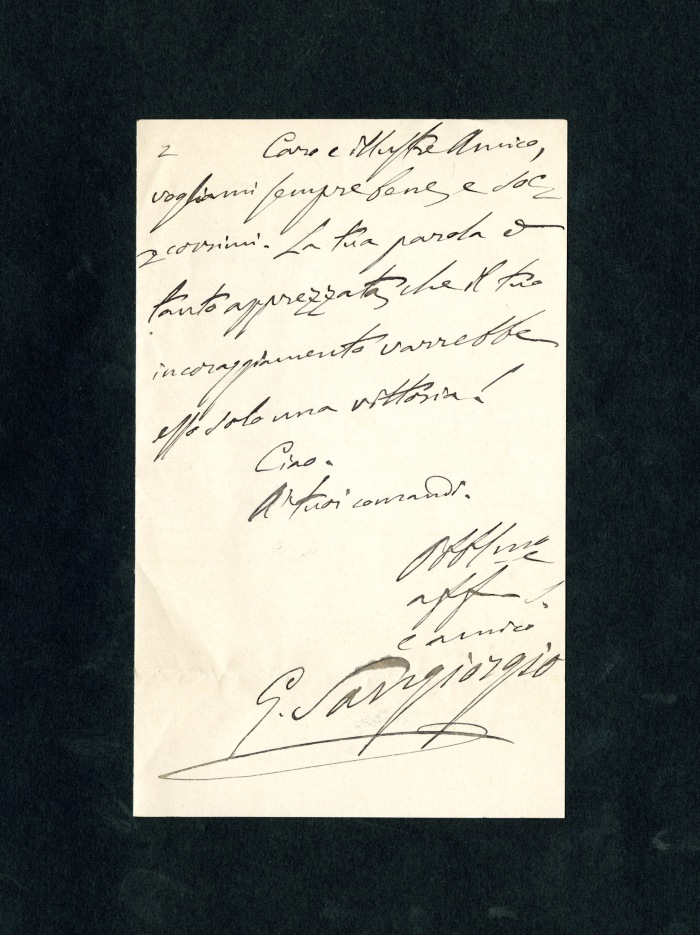 2 Caro e illustre Amico,
vogliami sempre bene, e soc=
=corrimi. La tua parola è
tanto apprezzata, che il tuo
incoraggiamento varrebbe
esso solo una vittoria!
Ciao.
Ai tuoi comandi.
aff
e amico
G. Sangiorgio